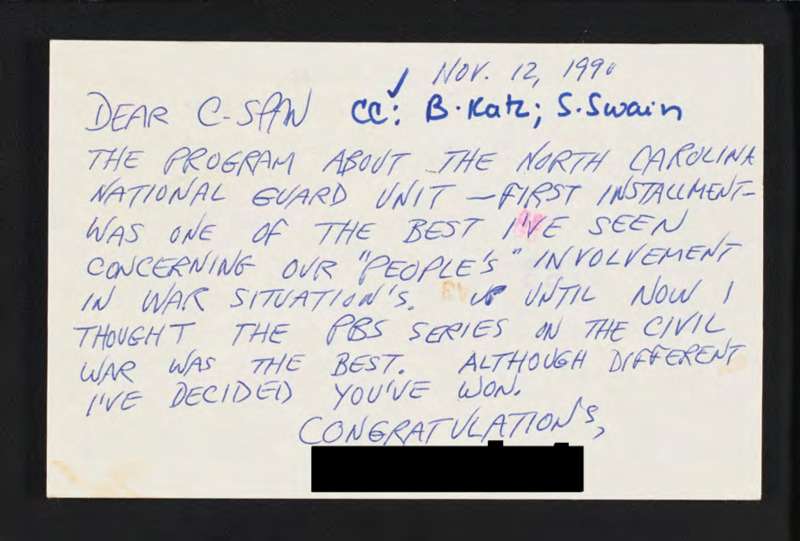 NOV. 12, 1990
DEAR C-SPAN ✓ CC: B. Katz; S. Swain
THE PROGRAM ABOUT THE NORTH CAROLINA
NATIONAL GUARD UNIT — FIRST INSTALLMENT-
WAS ONE OF THE BEST I'VE SEEN
CONCERNING OUR "PEOPLE'S" INVOLVEMENT
IN WAR SITUATION'S. UP UNTIL NOW I
THOUGHT THE PBS SERIES ON THE CIVIL
WAR WAS THE BEST. ALTHOUGH DIFFERENT
I'VE DECIDED YOU'VE WON.
CONGRATULATIONS,